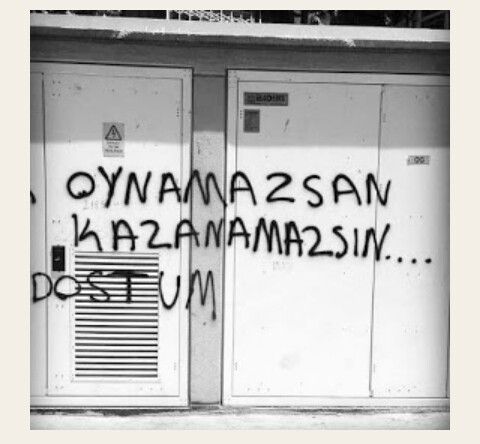 OYNAMAZSAN
KAZANAMAZSIN....
DOSTUM